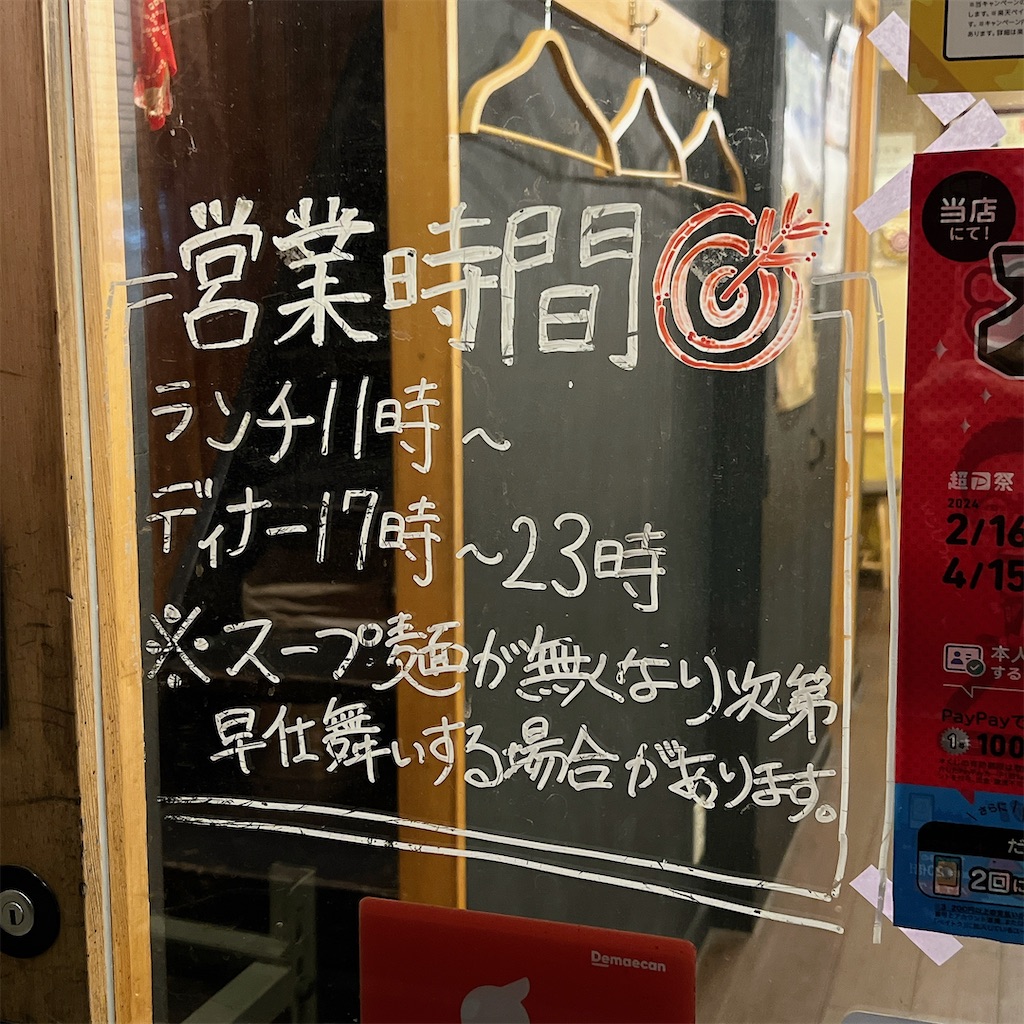 営業時間
ランチ11時～
ディナー17時～23時
※スープ麺が無くなり次第
早仕舞いする場合があります。
Demaecan
当店
にて!
超PayPay祭
2024
2/16
4/15
本人
する
PayPayで
1等
100
2回に